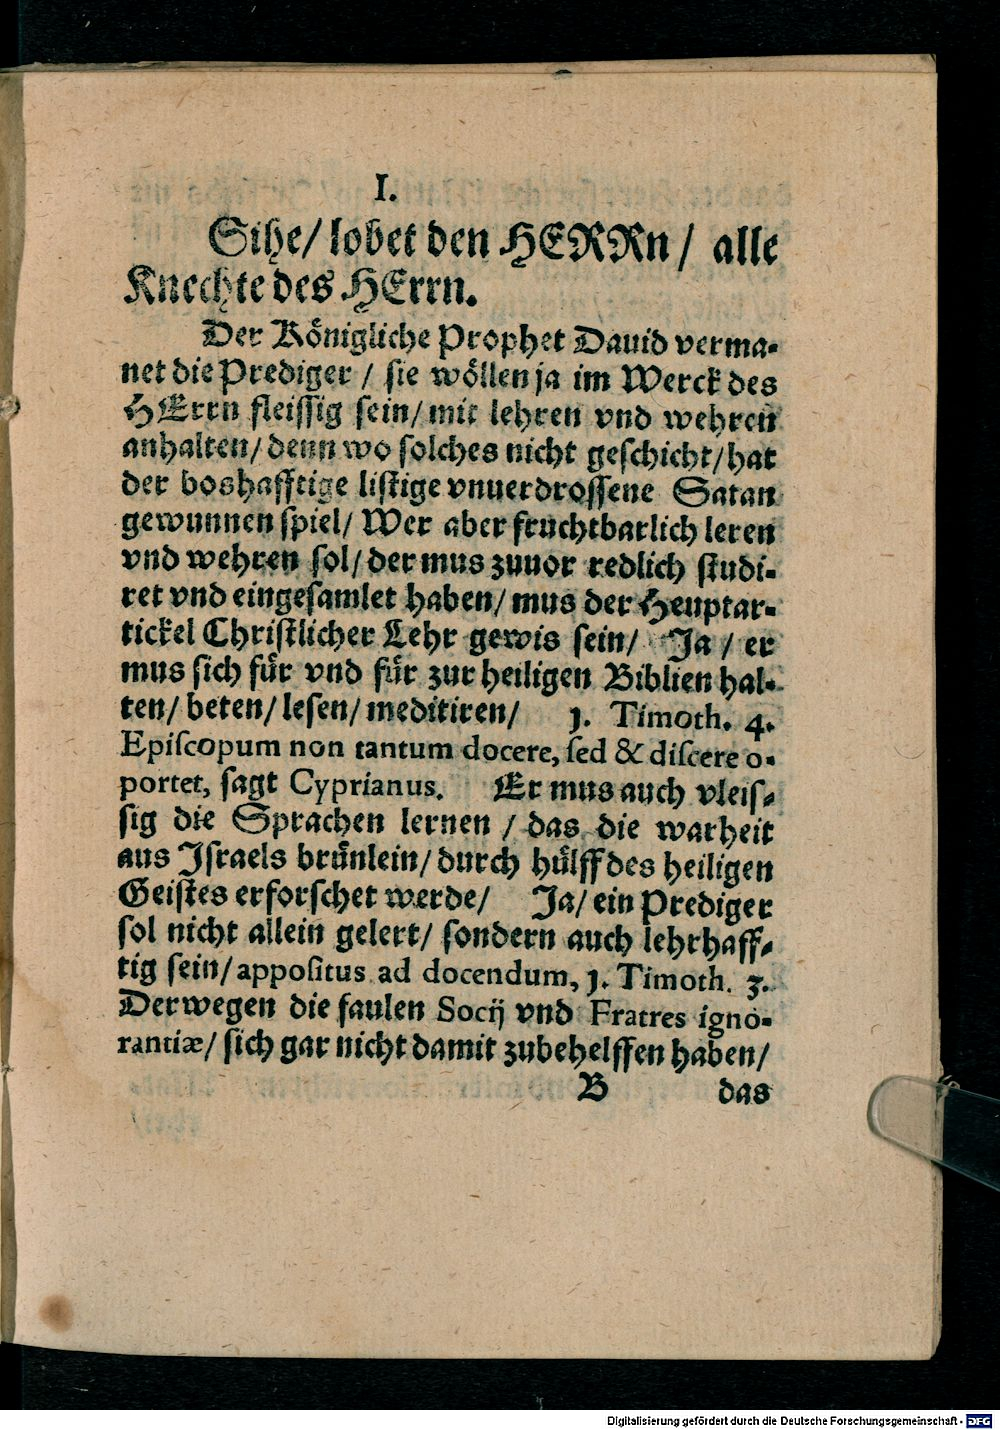 I.
Sihe/ lobet den HERRn/ alle
Knechte des HErrn.
Der Königliche Prophet Dauid verma-
net die Prediger / sie wöllen ja im Werck des
HErrn fleissig sein/ mit lehren vnd wehren
anhalten/ denn wo solches nicht geschicht/ hat
der boshafftige listige vnuerdrossene Satan
gewunnen spiel/ Wer aber fruchtbarlich leren
vnd wehren sol/ der mus zuuor redlich studi-
ret vnd eingesamlet haben/ mus der Heuptar-
tickel Christlicher Lehr gewis sein/ Ja / er
mus sich für vnd für zur heiligen Biblien hal-
ten/ beten/ lesen/ meditiren/ 1. Timoth. 4.
Episcopum non tantum docere, sed & discere o-
portet, sagt Cyprianus. Er mus auch vleis-
sig die Sprachen lernen / das die warheit
aus Israels brünlein/ durch hülff des heiligen
Geistes erforschet werde/ Ja/ ein Prediger
sol nicht allein gelert/ sondern auch lehrhaff-
tig sein/ appositus ad docendum, 1. Timoth. 3.
Derwegen die faulen Socij vnd Fratres igno-
rantiæ/ sich gar nicht damit zubehelffen haben/
B das
Digitalisierung gefördert durch die Deutsche Forschungsgemeinschaft - DFG